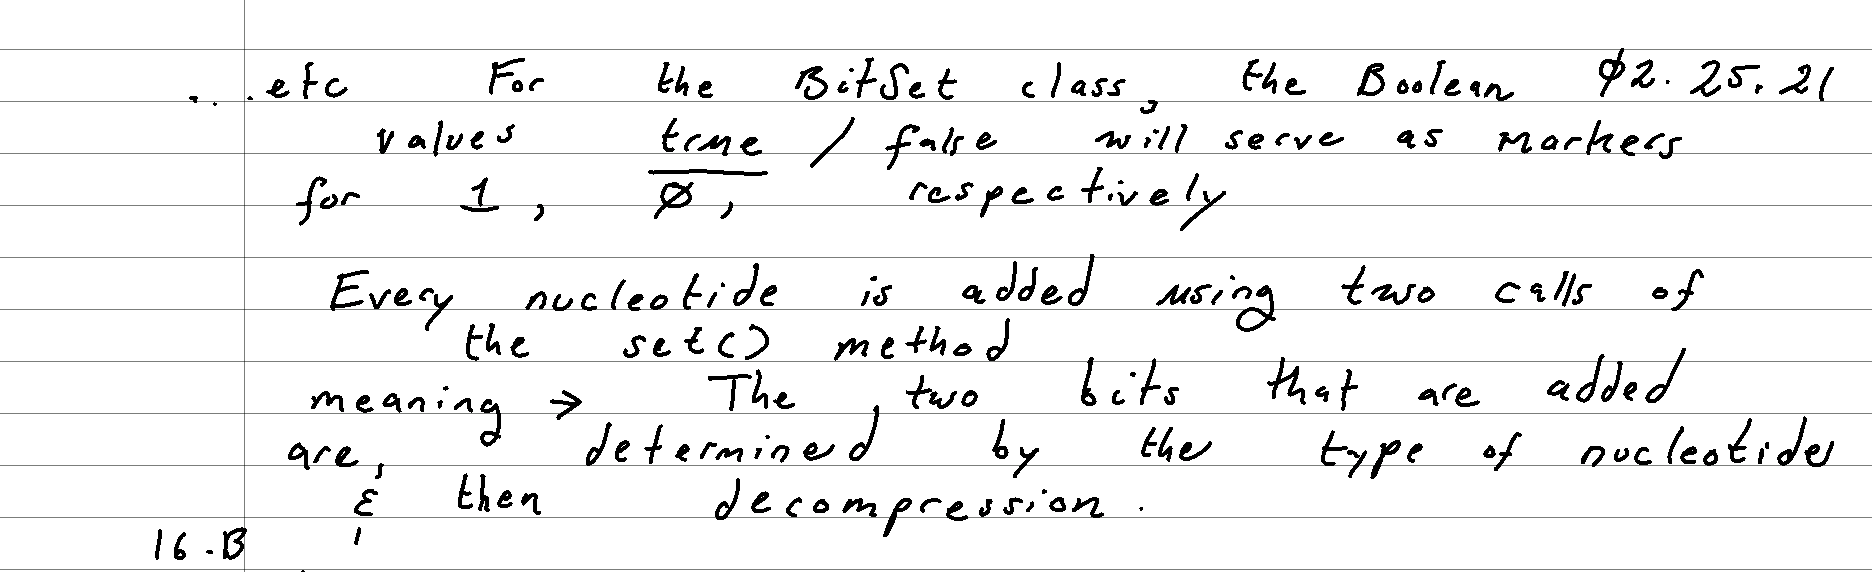 ...etc For the BitSet class, the Boolean Ø2.25.21
values true / false will serve as markers
for 1, Ø, respectively
Every nucleotide is added using two calls of
the set() method
meaning → The two bits that are added
are, determined by the type of nucleotide
& then decompression.
16.B